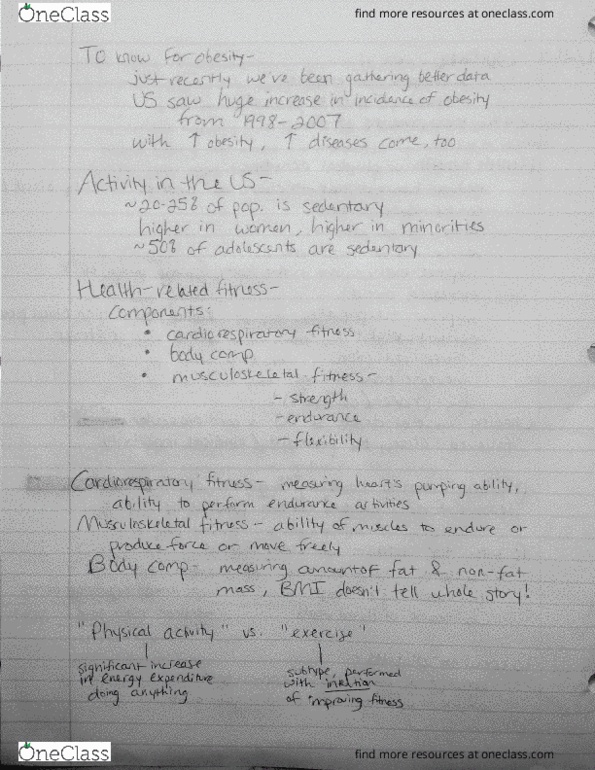 OneClass
find more resources at oneclass.com
To know for obesity-
just recently we've been gathering better data
US saw huge increase in incidence of obesity
from 1998-2007
with ↑ obesity, ↑ diseases come, too
Activity in the US-
~20-25% of pop. is sedentary
higher in women, higher in minorities
~50% of adolescents are sedentary
Health-related fitness-
Components:
• cardiorespiratory fitness
• body comp
• musculoskeletal fitness-
- strength
- endurance
- flexibility
Cardiorespiratory fitness- measuring heart's pumping ability,
ability to perform endurance activities
Musculoskeletal fitness- ability of muscles to endure or
produce force or move freely
Body comp- measuring amount of fat & non-fat
mass, BMI doesn't tell whole story!
"Physical activity" vs. "exercise"
significant increase
in energy expenditure
doing anything
subtype, performed
with intention
of improving fitness
OneClass
find more resources at oneclass.com